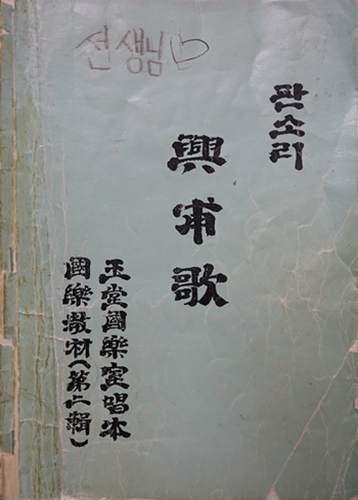 선생님♡
판소리
興甫歌
玉堂國樂室唱本
國樂敎材(第二輯)